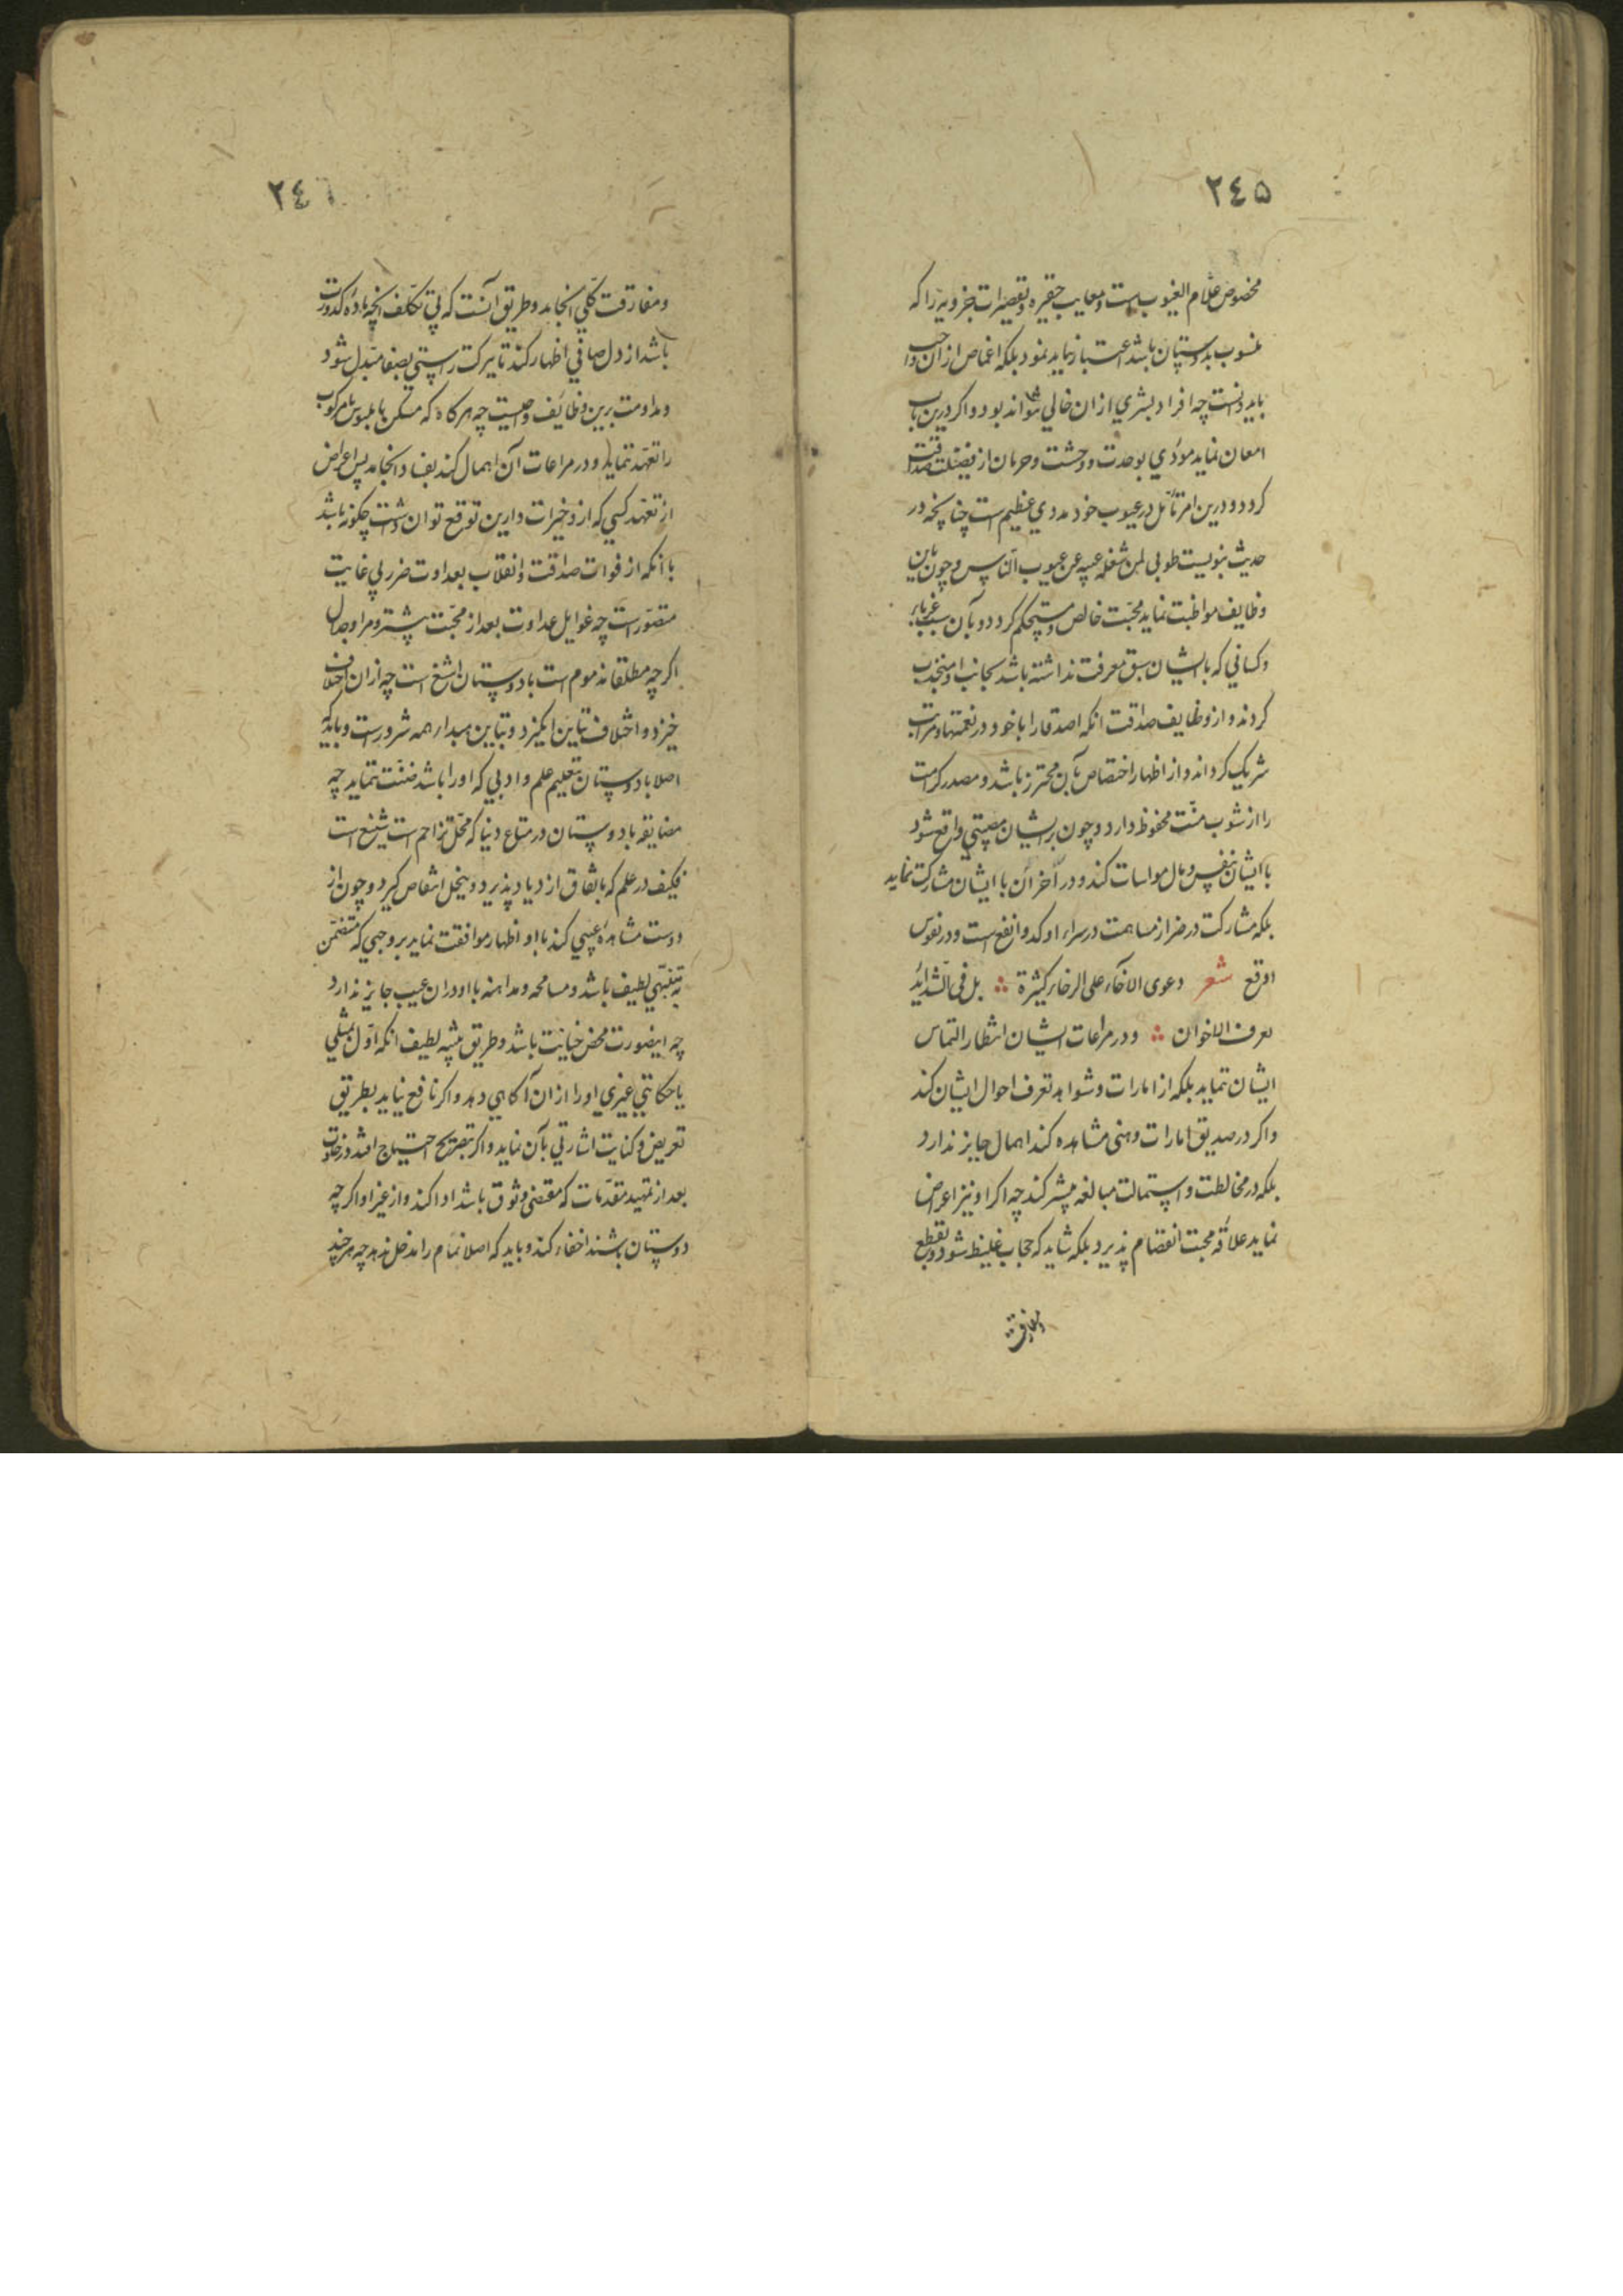 ۲٤۵
مخصوص علام الغیوب است و معایب حقیره و تقصیرات جزویه را که
منسوب بدوستان باشد اعتبار نباید نمود بلکه اغماض از ان واجب
باید دانست چه افراد بشری از ان خالی نتواند بود و اکر درین باب
امعان نماید مؤدی بوحدت و وحشت و حرمان از فضیلت صداقت
کردد و درین امر تأمل در عیوب خود مددی عظیم است چنانچه در
حدیث نبویست طوبی لمن شغله عیبه عن عیوب الناس و چون باین
وظایف مواظبت نماید محبت خالص و مستحکم کردد و بآن سبب غربا
و کسانی که با ایشان سبق معرفت نداشته باشد بجانب او منجذب
کردند و از وظایف صداقت انکه اصدقا را با خود در نعمتها و مراتب
شریک کرداند و از اظهار اختصاص بآن محترز باشد و مصدر کرامت
را از شوب منت محفوظ دارد و چون بر ایشان مصیبتی واقع شود
با ایشان بنفس و مال مواسات کند و در احزان با ایشان مشارکت نماید
بلکه مشارکت در ضرا از مساهمت در سراء اوکد و انفع است و در نفوس
اوقع شعر دعوی الاخآء علی الرخاء کثیرة بل فی الشدائد
تعرف الاخوان و در مراعات ایشان انتظار التماس
ایشان ننماید بلکه از امارات و شواهد تعرف احوال ایشان کند
و اکر در صدیق امارات وهنی مشاهده کند اهمال جایز ندارد
بلکه در مخالطت و استمالت مبالغه بیشتر کند چه اکر او نیز اعراض
نماید علاقه محبت انفصام پذیرد بلکه شاید که حجاب غلیظ شود و بقطع
و مفارقت
۲٤٦
و مفارقت کلی انجامد و طریق آنست که بی تکلف انچه ماده کدورت
باشد از دل صافی اظهار کند تا ببرکت راستی بصفا مبدل شود
و مداومت برین وظائف واجبست چه هرکاه که مسکن یا ملبوس یا مرکوب
را تعهد ننماید و در مراعات آن اهمال کند بفساد انجامد پس اعراض
از تعهد کسی که از و خیرات دارین توقع توان داشت چکونه باشد
با انکه از فوات صداقت و انقلاب بعداوت ضرر بی غایت
متصور است چه غوایل عداوت بعد از محبت بیشتر و مرا و جدال
اکر چه مطلقا مذموم است با دوستان اشنع است چه از ان اختلاف
خیزد و اختلاف تباین انکیزد و تباین مبدا همه شرورست و باید که
اصلا با دوستان بتعلیم علم و ادبی که او را باشد ضنت ننماید چه
مضایقه با دوستان در متاع دنیا که محل تزاحم است شنیع است
فکیف در علم که بانفاق ازدیاد پذیرد و ببخل انتقاص کیرد و چون از
دوست مشاهده عیبی کند با او اظهار موافقت نماید بر وجهی که متضمن
تنبیهی لطیف باشد و مسامحه و مداهنه با او در ان عیب جایز ندارد
چه اینصورت محض خیانت باشد و طریق تنبیه لطیف انکه اول بمثلی
یا حکایتی غیری او را از ان آکاهی دهد و اکر نافع نیاید بطریق
تعریض و کنایت اشارتی بآن نماید و اکر بتصریح احتیاج افتد در خلوت
بعد از تمهید مقدمات که مقتضی وثوق باشد ادا کند و از غیر او اکر چه
دوستان باشند اخفاء کند و باید که اصلا نمام را مدخل ندهد چه هرچند